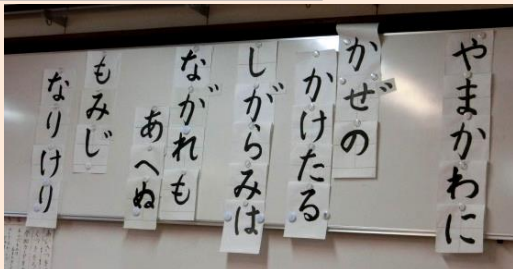 やまかわに
かぜの
かけたる
しがらみは
ながれも
あへぬ
もみじ
なりけり